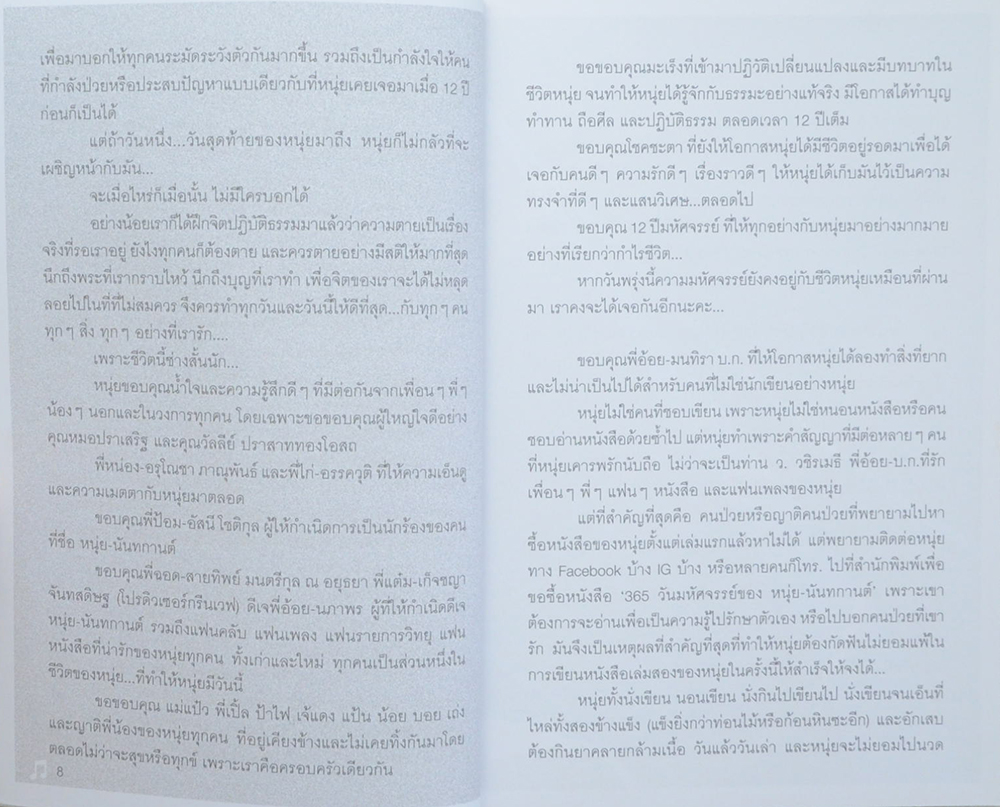 เพื่อมาบอกให้ทุกคนระมัดระวังตัวกันมากขึ้น รวมถึงเป็นกำลังใจให้คน
ที่กำลังป่วยหรือประสบปัญหาแบบเดียวกับที่หนุ่ยเคยเจอมาเมื่อ 12 ปี
ก่อนก็เป็นได้
แต่ถ้าวันหนึ่ง...วันสุดท้ายของหนุ่ยมาถึง หนุ่ยก็ไม่กลัวที่จะ
เผชิญหน้ากับมัน...
จะเมื่อไหร่ก็เมื่อนั้น ไม่มีใครบอกได้
อย่างน้อยเราก็ได้ฝึกจิตปฏิบัติธรรมมาแล้วว่าความตายเป็นเรื่อง
จริงที่รอเราอยู่ ยังไงทุกคนก็ต้องตาย และควรตายอย่างมีสติให้มากที่สุด
นึกถึงพระที่เรากราบไหว้ นึกถึงบุญที่เราทำ เพื่อจิตของเราจะได้ไม่หลุด
ลอยไปในที่ที่ไม่สมควร จึงควรทำทุกวันและวันนี้ให้ดีที่สุด...กับทุกๆ คน
ทุกๆ สิ่ง ทุกๆ อย่างที่เรารัก....
เพราะชีวิตนี้ช่างสั้นนัก...
หนุ่ยขอบคุณน้ำใจและความรู้สึกดีๆ ที่มีต่อกันจากเพื่อนๆ พี่ๆ
น้องๆ นอกและในวงการทุกคน โดยเฉพาะขอขอบคุณผู้ใหญ่ใจดีอย่าง
คุณหมอปราเสริฐ และคุณวัลลีย์ ปราสาททองโอสถ
พี่หน่อง-อรุโณชา ภาณุพันธ์ และพี่ไก่-อรรควุติ ที่ให้ความเอ็นดู
และความเมตตากับหนุ่ยมาตลอด
ขอบคุณพี่ป้อม-อัสนี โชติกุล ผู้ให้กำเนิดการเป็นนักร้องของคน
ที่ชื่อ หนุ่ย-นันทกานต์
ขอบคุณพี่ฉอด-สายทิพย์ มนตรีกุล ณ อยุธยา พี่แต๋ม-เก็จชญา
จันทสดิษฐ (โปรดิวเซอร์กรีนเวฟ) ดีเจพี่อ้อย-นภาพร ผู้ที่ให้กำเนิดดีเจ
หนุ่ย-นันทกานต์ รวมถึงแฟนคลับ แฟนเพลง แฟนรายการวิทยุ แฟน
หนังสือที่น่ารักของหนุ่ยทุกคน ทั้งเก่าและใหม่ ทุกคนเป็นส่วนหนึ่งใน
ชีวิตของหนุ่ย...ที่ทำให้หนุ่ยมีวันนี้
ขอขอบคุณ แม่แป๋ว พี่เปิ้ล ป้าไฟ เจ้แดง แป้น น้อย บอย เถ่ง
และญาติพี่น้องของหนุ่ยทุกคน ที่อยู่เคียงข้างและไม่เคยทิ้งกันมาโดย
ตลอดไม่ว่าจะสุขหรือทุกข์ เพราะเราคือครอบครัวเดียวกัน
8
ขอขอบคุณมะเร็งที่เข้ามาปฏิวัติเปลี่ยนแปลงและมีบทบาทใน
ชีวิตหนุ่ย จนทำให้หนุ่ยได้รู้จักกับธรรมะอย่างแท้จริง มีโอกาสได้ทำบุญ
ทำทาน ถือศีล และปฏิบัติธรรม ตลอดเวลา 12 ปีเต็ม
ขอบคุณโชคชะตา ที่ยังให้โอกาสหนุ่ยได้มีชีวิตอยู่รอดมาเพื่อได้
เจอกับคนดีๆ ความรักดีๆ เรื่องราวดีๆ ให้หนุ่ยได้เก็บมันไว้เป็นความ
ทรงจำที่ดีๆ และแสนวิเศษ...ตลอดไป
ขอบคุณ 12 ปีมหัศจรรย์ ที่ให้ทุกอย่างกับหนุ่ยมาอย่างมากมาย
อย่างที่เรียกว่ากำไรชีวิต...
หากวันพรุ่งนี้ความมหัศจรรย์ยังคงอยู่กับชีวิตหนุ่ยเหมือนที่ผ่าน
มา เราคงจะได้เจอกันอีกนะคะ...
ขอบคุณพี่อ้อย-มนทิรา บ.ก. ที่ให้โอกาสหนุ่ยได้ลองทำสิ่งที่ยาก
และไม่น่าเป็นไปได้สำหรับคนที่ไม่ใช่นักเขียนอย่างหนุ่ย
หนุ่ยไม่ใช่คนที่ชอบเขียน เพราะหนุ่ยไม่ใช่หนอนหนังสือหรือคน
ชอบอ่านหนังสือด้วยซ้ำไป แต่หนุ่ยทำเพราะคำสัญญาที่มีต่อหลายๆ คน
ที่หนุ่ยเคารพรักนับถือ ไม่ว่าจะเป็นท่าน ว. วชิรเมธี พี่อ้อย-บ.ก.ที่รัก
เพื่อนๆ พี่ๆ แฟนๆ หนังสือ และแฟนเพลงของหนุ่ย
แต่ที่สำคัญที่สุดคือ คนป่วยหรือญาติคนป่วยที่พยายามไปหา
ซื้อหนังสือของหนุ่ยตั้งแต่เล่มแรกแล้วหาไม่ได้ แต่พยายามติดต่อหนุ่ย
ทาง Facebook บ้าง IG บ้าง หรือหลายคนก็โทร. ไปที่สำนักพิมพ์เพื่อ
ขอซื้อหนังสือ '365 วันมหัศจรรย์ของ หนุ่ย-นันทกานต์' เพราะเขา
ต้องการจะอ่านเพื่อเป็นความรู้ไปรักษาตัวเอง หรือไปบอกคนป่วยที่เขา
รัก มันจึงเป็นเหตุผลที่สำคัญที่สุดที่ทำให้หนุ่ยต้องกัดฟันไม่ยอมแพ้ใน
การเขียนหนังสือเล่มสองของหนุ่ยในครั้งนี้ให้สำเร็จให้จงได้...
หนุ่ยทั้งนั่งเขียน นอนเขียน นั่งกินไปเขียนไป นั่งเขียนจนเอ็นที่
ไหล่ทั้งสองข้างแข็ง (แข็งยิ่งกว่าท่อนไม้หรือก้อนหินซะอีก) และอักเสบ
ต้องกินยาคลายกล้ามเนื้อ วันแล้ววันเล่า และหนุ่ยจะไม่ยอมไปนวด